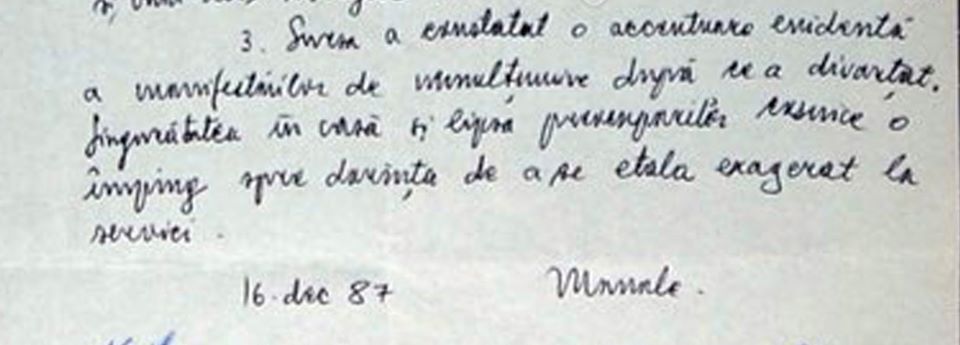 3. Sursa a constatat o accentuare evidentă
a manifestărilor de nemulțumire după ce a divorțat.
Singurătatea în casă și lipsa preocupărilor casnice o
împing spre dorința de a se etala exagerat la
servici.
16 dec 87